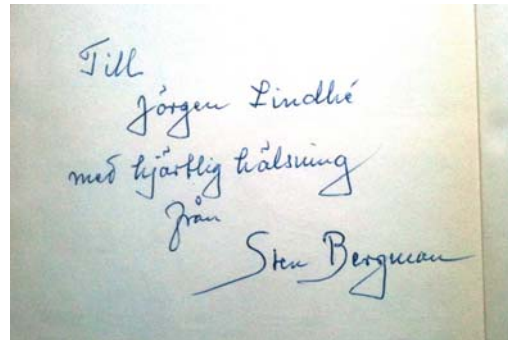 Till
Jörgen Lindhé
med hjärtlig hälsning
från
Sten Bergman